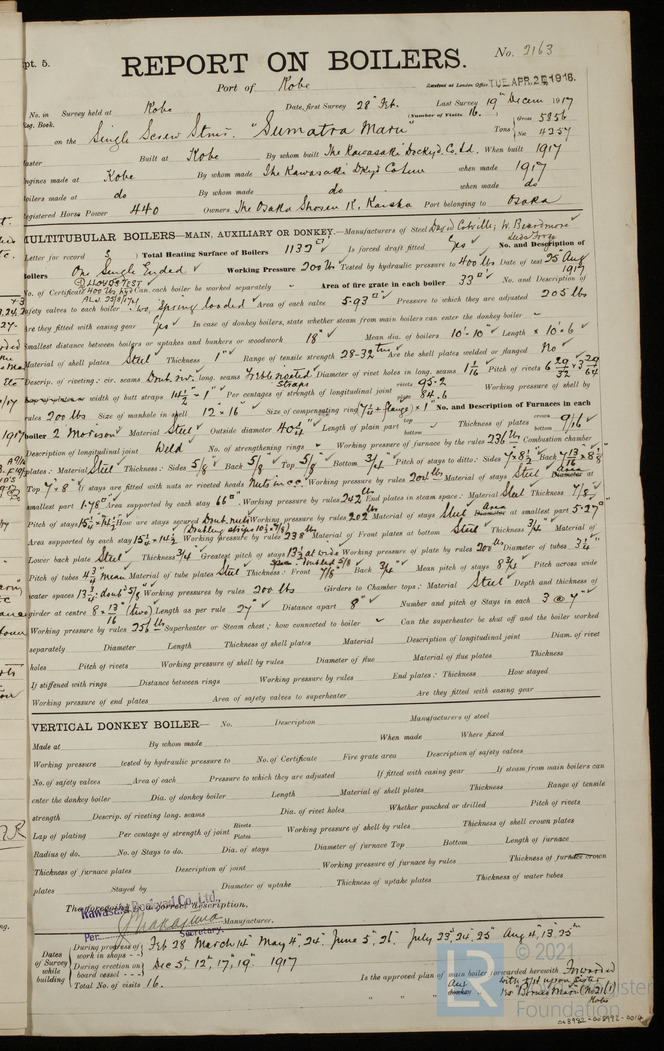 Rpt. 5.
REPORT ON BOILERS.
No. 2163
Port of Kobe
Received at London Office TUE. APR. 2 1918.
No. in Survey held at Kobe Date, first Survey 28th Feb. Last Survey 19th Decem 1917
Reg. Book. (Number of Visits 16.)
on the Single Screw Stmr. "Sumatra Maru" Tons Gross 5856 Net 4257
Master Built at Kobe By whom built The Kawasaki Dockyd. Co. Ld. When built 1917
Engines made at Kobe By whom made The Kawasaki Dkyd Co when made 1917
Boilers made at do By whom made do when made do
Registered Horse Power 440 Owners The Osaka Shosen K. Kaisha Port belonging to Osaka
MULTITUBULAR BOILERS—MAIN, AUXILIARY OR DONKEY.—Manufacturers of Steel David Colville; W. Beardmore
Leeds Forge
Letter for record S Total Heating Surface of Boilers 1132 Is forced draft fitted Yes No. and Description of
Boilers One Single Ended Working Pressure 200 lbs Tested by hydraulic pressure to 400 lbs Date of test 25 Aug 1917
No. of Certificate Can each boiler be worked separately Area of fire grate in each boiler 33 No. and Description of
Safety valves to each boiler Two, Spring loaded Area of each valve 5.93 Pressure to which they are adjusted 205 lbs
Are they fitted with easing gear Yes In case of donkey boilers, state whether steam from main boilers can enter the donkey boiler
Smallest distance between boilers or uptakes and bunkers or woodwork 18" Mean dia. of boilers 10'-10" Length 10'-6"
Material of shell plates Steel Thickness 1" Range of tensile strength 28-32 tns Are the shell plates welded or flanged No
Descrip. of riveting: cir. seams Doub. riv. long. seams Treble riveted straps Diameter of rivet holes in long. seams 1 1/16 Pitch of rivets 6 29/32 × 3 29/64
width of butt straps 14 1/2 × 1" Per centages of strength of longitudinal joint rivets 95.2 plates 84.6 Working pressure of shell by
rules 200 lbs Size of manhole in shell 12" × 16" Size of compensating ring (7 1/2 + flange) × 1" No. and Description of Furnaces in each
boiler 2 Morison Material Steel Outside diameter 40 1/4" Length of plain part top bottom Thickness of plates crown bottom 9/16
Description of longitudinal joint Weld No. of strengthening rings Working pressure of furnace by the rules 236 lbs Combustion chamber
plates: Material Steel Thickness: Sides 5/8" Back 5/8 Top 5/8 Bottom 3/4 Pitch of stays to ditto: Sides 7" × 8 1/2" Back 7 13/16 × 8 5/8
Top 7" × 8" If stays are fitted with nuts or riveted heads Nuts in c.c. Working pressure by rules 204 lbs Material of stays Steel Area at
smallest part 1.78 Area supported by each stay 66 Working pressure by rules 242 lbs End plates in steam space: Material Steel Thickness 7/8
Pitch of stays 15 1/2 × 14 1/2 How are stays secured Doub. nuts Working pressure by rules 202 Material of stays Steel Area at smallest part 5.27
Area supported by each stay 15 1/2 × 14 1/2 Working pressure by rules 238 lbs Material of Front plates at bottom Steel Thickness 3/4" Material of
Lower back plate Steel Thickness 3/4" Greatest pitch of stays 13 1/2 at wide Working pressure of plate by rules 200 lbs Diameter of tubes 3 1/4"
Pitch of tubes 4 3/4" mean Material of tube plates Steel Thickness: Front 7/8 Back 3/4 Mean pitch of stays 8 3/4 Pitch across wide
water spaces 13 3/4 doub. 5/8 Working pressures by rules 200 lbs Girders to Chamber tops: Material Steel Depth and thickness of
girder at centre 8 × 13/16 (two) Length as per rule 27" Distance apart 8" Number and pitch of Stays in each 3 @ 7"
Working pressure by rules 256 lbs Superheater or Steam chest; how connected to boiler Can the superheater be shut off and the boiler worked
separately Diameter Length Thickness of shell plates Material Description of longitudinal joint Diam. of rivet
holes Pitch of rivets Working pressure of shell by rules Diameter of flue Material of flue plates Thickness
If stiffened with rings Distance between rings Working pressure by rules End plates: Thickness How stayed
Working pressure of end plates Area of safety valves to superheater Are they fitted with easing gear
VERTICAL DONKEY BOILER— No. Description Manufacturers of steel
Made at By whom made When made Where fixed
Working pressure tested by hydraulic pressure to No. of Certificate Fire grate area Description of safety valves
No. of safety valves Area of each Pressure to which they are adjusted If fitted with easing gear If steam from main boilers can
enter the donkey boiler Dia. of donkey boiler Length Material of shell plates Thickness Range of tensile
strength Descrip. of riveting long. seams Dia. of rivet holes Whether punched or drilled Pitch of rivets
Lap of plating Per centage of strength of joint Rivets Plates Working pressure of shell by rules Thickness of shell crown plates
Radius of do. No. of Stays to do. Dia. of stays Diameter of furnace Top Bottom Length of furnace
Thickness of furnace plates Description of joint Working pressure of furnace by rules Thickness of furnace crown
plates Stayed by Diameter of uptake Thickness of uptake plates Thickness of water tubes
The foregoing is a correct description,
Kawasaki Dockyard Co., Ltd.,
Per Secretary. Manufacturer.
Dates of Survey while building
During progress of work in shops - - Feb 28 March 14 May 4, 24 June 5, 26, July 23, 24, 25 Aug 4, 13, 25
During erection on board vessel - - - Dec 5, 12, 17, 19 1917
Total No. of visits 16.
Is the approved plan of main boiler forwarded herewith Forwarded
with upon Sister
Borneo Maru (No 2161)
Kobe
© 2021
LR
Lloyd's Register
Foundation
008992-008992-0014